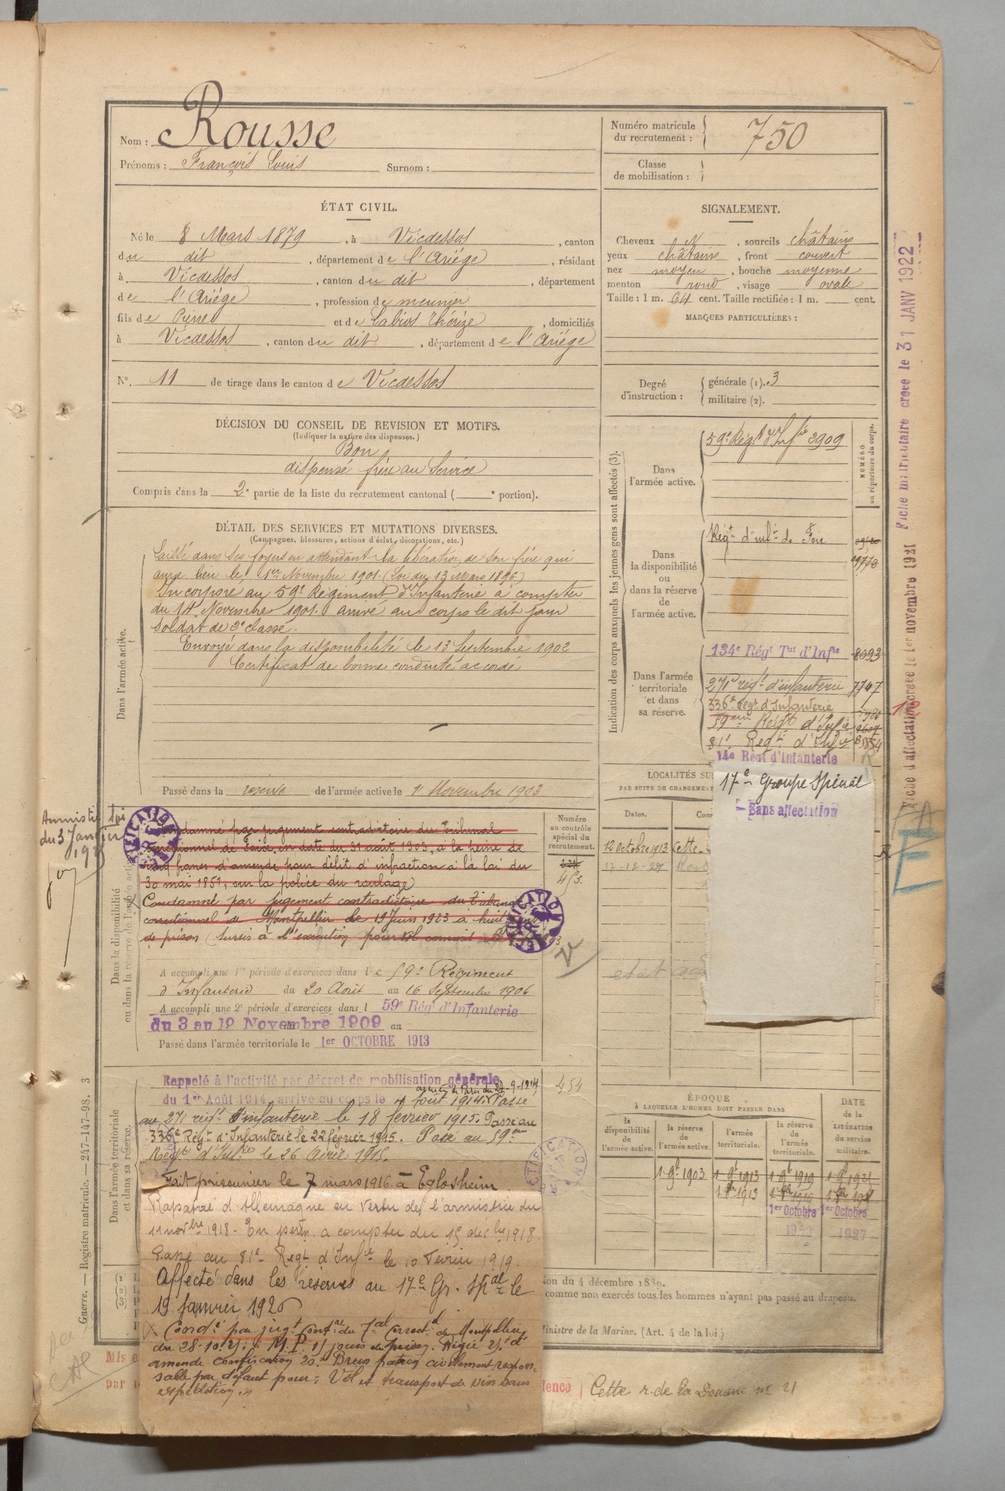 Nom : Rousse
Prénoms : François Louis Surnom :
Numéro matricule du recrutement : 750
Classe de mobilisation :
ÉTAT CIVIL.
Né le 8 Mars 1879, à Vicdessos, canton
du dit, département de l'Ariège, résidant
à Vicdessos, canton du dit, département
de l'Ariège, profession de meunier
fils de Pierre et de Cabios Thérèze, domiciliés
à Vicdessos, canton du dit, département de l'Ariège
N° 11 de tirage dans le canton de Vicdessos
SIGNALEMENT.
Cheveux N, sourcils châtains
yeux châtains, front couvert
nez moyen, bouche moyenne
menton rond, visage ovale
Taille : 1 m. 64 cent. Taille rectifiée : 1 m. cent.
MARQUES PARTICULIÈRES :
Degré d'instruction : générale (1). 3
militaire (2).
DÉCISION DU CONSEIL DE REVISION ET MOTIFS.
(Indiquer la nature des dispenses.)
Bon
dispensé frère au Service
Compris dans la 2e partie de la liste du recrutement cantonal ( e portion).
DÉTAIL DES SERVICES ET MUTATIONS DIVERSES.
(Campagnes, blessures, actions d'éclat, décorations, etc.)
Dans l'armée active.
Laissé dans ses foyers en attendant la libération de son frère qui
aura lieu le 1er Novembre 1901. (Loi du 13 Mars 1896)
Incorporé au 59e Régiment d'Infanterie à compter
du 14 Novembre 1901. arrivé au corps le dit jour
Soldat de 2e classe.
Envoyé dans la disponibilité le 13 Septembre 1902
Certificat de bonne conduite accordé
Passé dans la réserve de l'armée active le 1 Novembre 1903
Amnistié Loi
du 3 Janvier
Dans la disponibilité
ou dans la réserve de l'armée active
Condamné par jugement contradictoire du Tribunal
correctionnel de Foix, en date du 31 août 1903, à la peine de
cinq francs d'amende pour délit d'infraction à la loi du
30 mai 1851, sur la police du roulage
Condamné par jugement contradictoire du Tribunal
correctionnel de Montpellier le 19 Juin 1923 à huit jours
de prison (sursis à l'exécution) pour vol commis le
A accompli une 1re période d'exercices dans le 59e Régiment
d'Infanterie du 20 Août au 16 Septembre 1906
A accompli une 2e période d'exercices dans l 59e Rég. d'Infanterie
du 3 au 19 Novembre 1909 au
Passé dans l'armée territoriale le 1er OCTOBRE 1913
Dans l'armée territoriale
et dans sa réserve.
Rappelé à l'activité par décret de mobilisation générale
du 1er Août 1914, arrivé au corps le 4 Août 1914. Passé
au 271 régt d'infanterie le 18 février 1915. Passé au
336e Régt d'Infanterie le 22 février 1915. Passé au 59eme
Régt d'Infie le 26 Avril 1915.
Fait prisonnier le 7 mars 1916 à Eglosheim
Rapatrié d'Allemagne en vertu de l'armistice du
11 novbre 1918. En perm. à compter du 15 décbre 1918.
Passé au 81e Régt d'Infie le 10 Février 1919.
Affecté dans les réserves au 17e Gp. Spal le
19 Janvier 1926
amende confiscation
sable par défaut pour : Vol et transport de vin sans
expédition.
Indication des corps auxquels les jeunes gens sont affectés (3).
NUMÉRO au répertoire du corps.
Dans l'armée active.
59e Régt d'Infie 2909
Dans la disponibilité ou dans la réserve de l'armée active.
Régt d'infie de Foix
Dans l'armée territoriale et dans sa réserve.
134e Régt Tal d'Infie 8093
271e régt d'infanterie 7747
336e Régt d'Infanterie
59eme Régt d'Infie
81e Régt d'Infie
14e Régt d'Infanterie
17e Groupe Spécial
Sans affectation
LOCALITÉS SU
PAR SUITE DE CHANGEMENT
Numéro au contrôle spécial du recrutement.
Dates.
12 Octobre 1913 Cette
12-12-27
453.
454
ÉPOQUE
À LAQUELLE L'HOMME DOIT PASSER DANS
la disponibilité de l'armée active.
la réserve de l'armée active.
l'armée territoriale.
la réserve de l'armée territoriale.
DATE de la LIBÉRATION du service militaire.
1 9bre 1903
1er Octobre
1er Octobre
1927
ion du 4 décembre 1889.
comme non exercés tous les hommes n'ayant pas passé au drapeau.
Ministre de la Marine. (Art. 4 de la loi)
dence Cette r. de la Douane no 21
Mis e
par
Guerre. — Registre matricule. — 247-147-98. 3
Fiche d'affectation créée le 1er novembre 1921
Fiche matriculaire créée le 31 JANV 1922
E